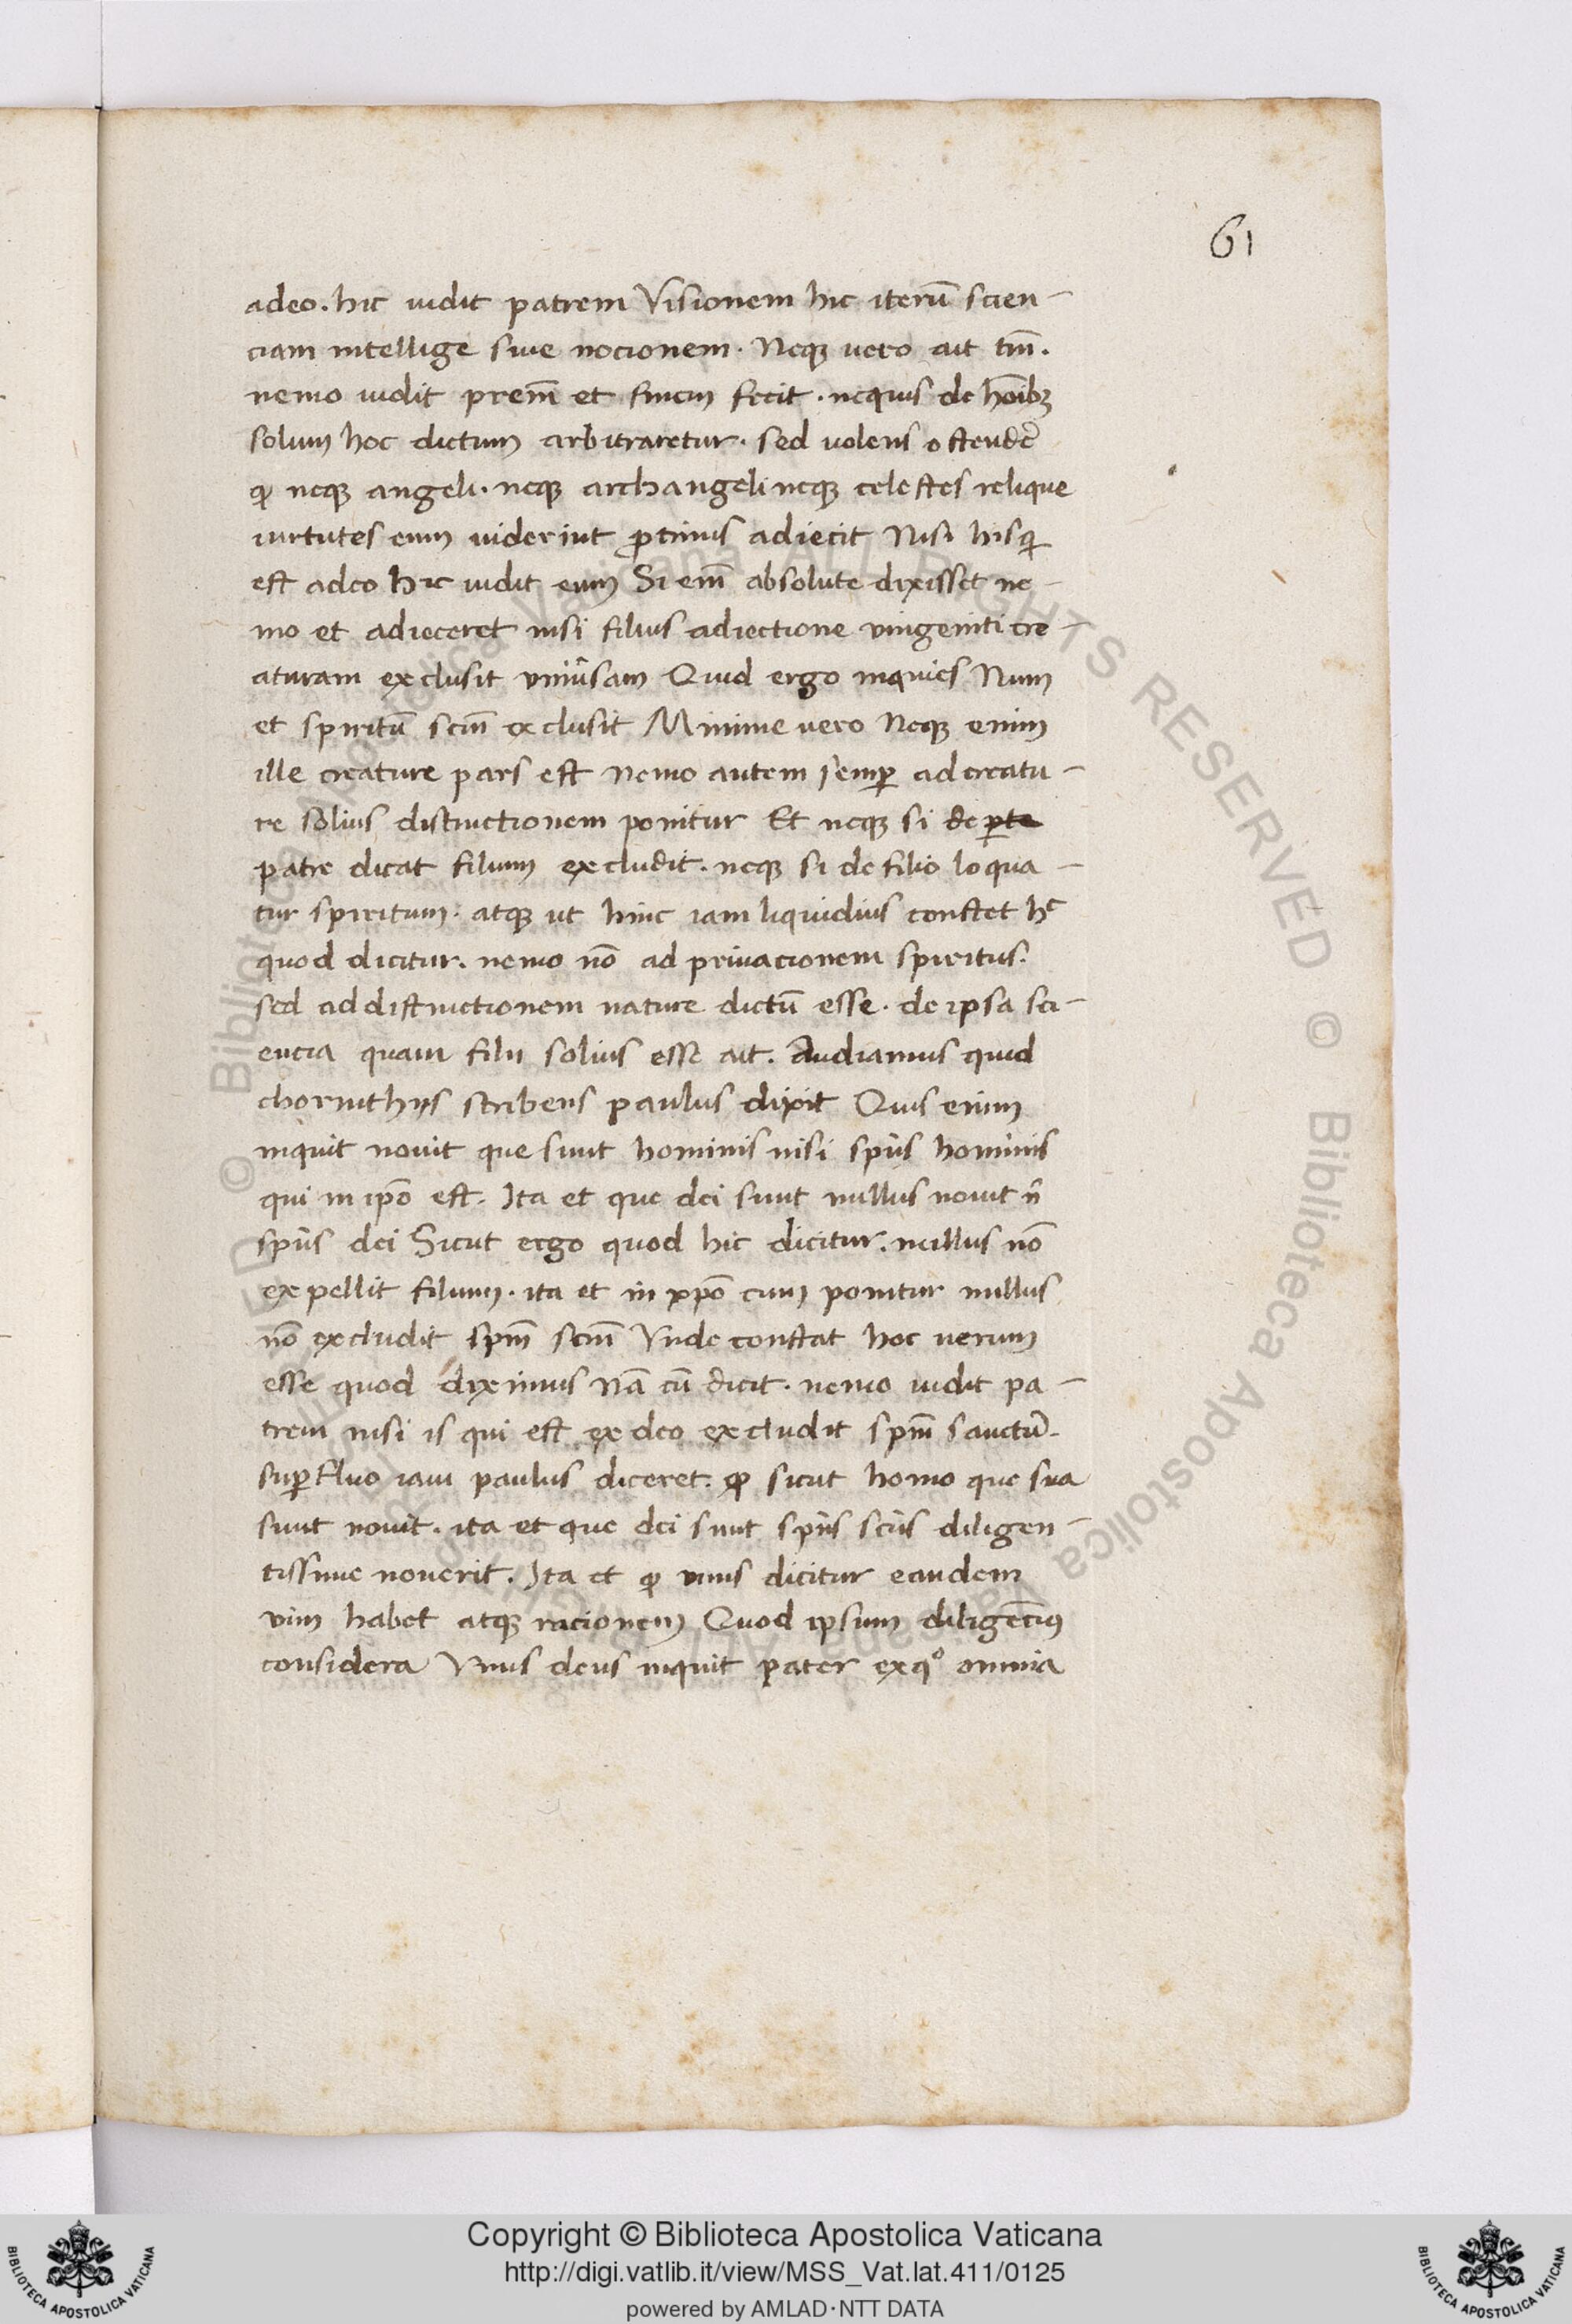 61
adeo. hic uidit patrem Visionem hic iterũ scien-
ciam intellige siue nocionem. Neqȝ uero ait tm̃.
nemo uidit prem̃ et finem fecit. nequis de hoĩbȝ
solum hoc dictum arbitraretur. sed uolens ostender̃
ꝙ neqȝ angeli. neqȝ archangeli neqȝ celestes relique
uirtutes eum uiderint ꝓtinus adiecit Nisi his qi
est adeo hic uidit eum Si em̃ absolute dixisset ne-
mo et adieceret nisi filius adiectione vnigeniti cre-
aturam exclusit vniũsam Quid ergo inquies Num
et spiritũ scm̃ exclusit Minime uero Neqȝ enim
ille creature pars est Nemo autem semꝑ ad creatu-
re solius distinctionem ponitur Et neqȝ si de ꝑte
patre dicat filium excludit. neqȝ si de filio loqua-
tur spiritum. atqȝ ut hinc iam liquidius constet hc
quod dicitur. nemo nõ ad priuacionem spiritus.
sed ad distinctionem nature dictũ esse. de ipsa sci-
encia quam filii solius esse ait. Audiamus quid
chorinthijs scribens paulus dixit Quis enim
inquit nouit que sunt hominis nisi spũs hominis
qui in ipõ est. Ita et que dei sunt nullus nouit ñ
spũs dei Sicut ergo quod hic dicitur. nullus nõ
expellit filium. ita et in xpõ cum ponitur nullus
nõ excludit spm̃ scm̃ Vnde constat hoc uerum
esse quod diximus Nã cũ dicit. nemo uidit pa-
trem nisi is qui est ex deo excludit spm̃ sanctũ.
suꝑfluo iam paulus diceret. ꝙ sicut homo que sua
sunt nouit. ita et que dei sunt spũs scũs diligen-
tissime nouerit. Ita et ꝙ vnus dicitur eandem
vim habet atqȝ racionem Quod ipsum diligẽcius
considera Vnus deus inquit pater ex qo omnia
© Biblioteca Apostolica Vaticana ALL RIGHTS RESERVED © Biblioteca Apostolica Vaticana ALL RIGHTS RESERVED
Copyright © Biblioteca Apostolica Vaticana
http://digi.vatlib.it/view/MSS_Vat.lat.411/0125
powered by AMLAD·NTT DATA
BIBLIOTECA APOSTOLICA VATICANA
BIBLIOTECA APOSTOLICA VATICANA